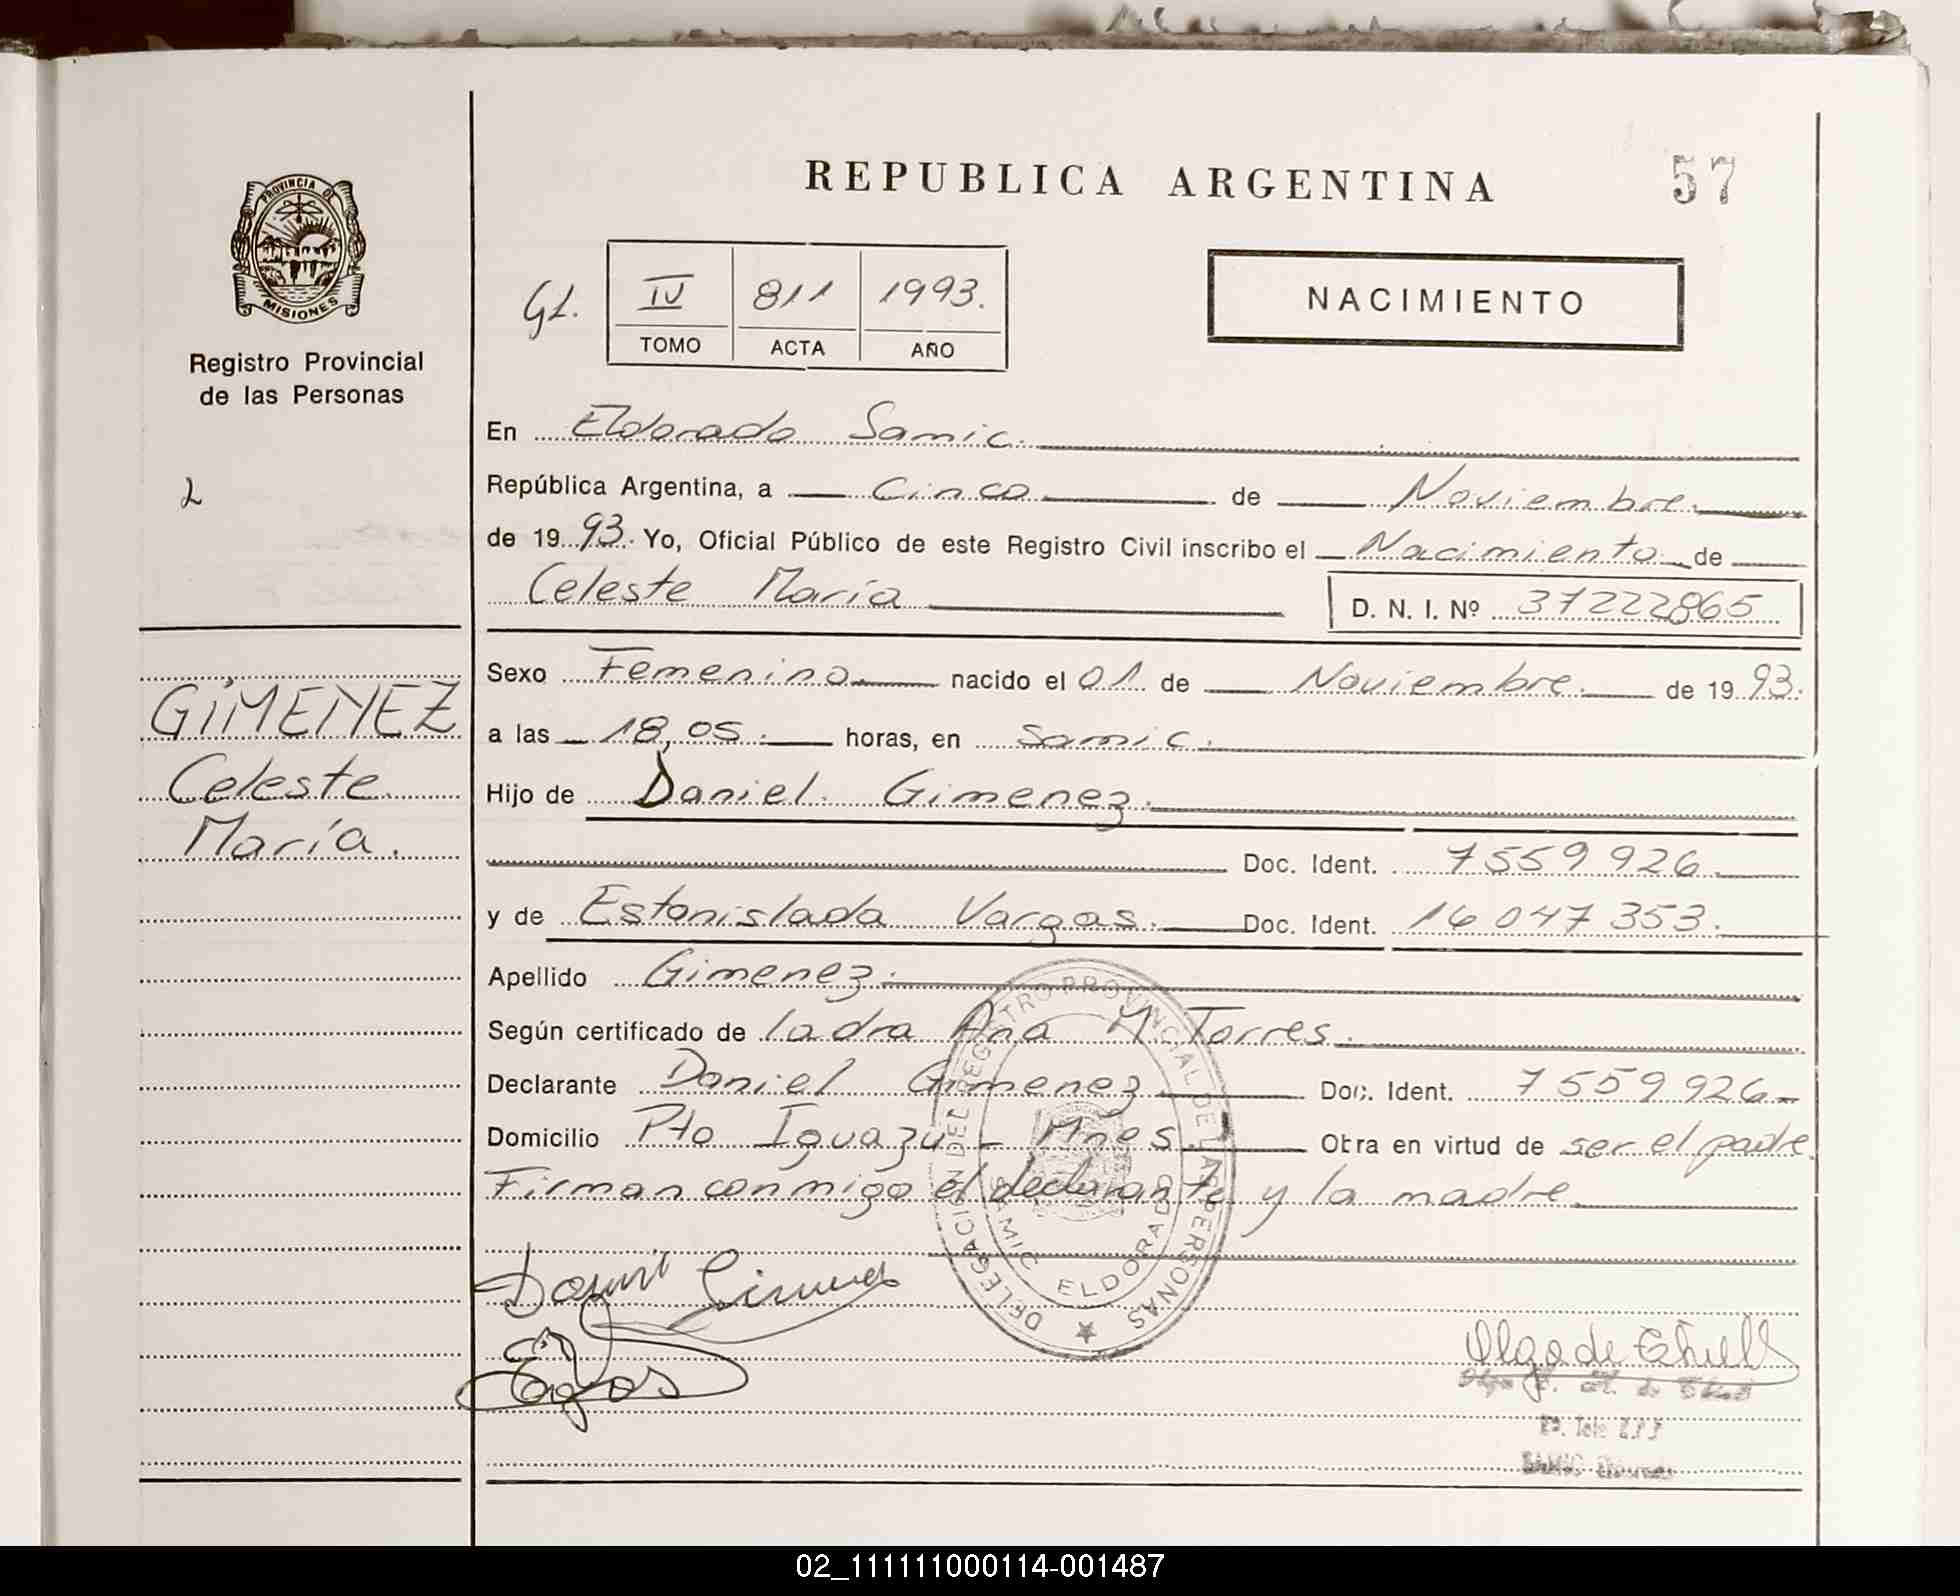 REPUBLICA ARGENTINA
57
PROVINCIA DE
MISIONES
Registro Provincial
de las Personas
GL.
IV 811 1993.
TOMO ACTA AÑO
NACIMIENTO
En Eldorado Samic.
República Argentina, a Cinco de Noviembre.
de 19 93. Yo, Oficial Público de este Registro Civil inscribo el Nacimiento de
Celeste María D. N. I. Nº 37222865
2
GIMENEZ
Celeste
María.
Sexo Femenino nacido el 01 de Noviembre. de 19 93.
a las 18,05. horas, en Samic.
Hijo de Daniel Gimenez.
Doc. Ident. 7559926
y de Estanislada Vargas. Doc. Ident. 16047353.
Apellido Gimenez.
Según certificado de la dra Ana M Torres.
Declarante Daniel Gimenez Doc. Ident. 7559926
Domicilio Pto Iguazu - Mnes Obra en virtud de ser el padre.
Firman conmigo el declarante y la madre
DELEGACION DEL REGISTRO PROVINCIAL DE LAS PERSONAS
SAMIC ELDORADO
Gimenez
Olga de
SAMIC
02_111111000114-001487